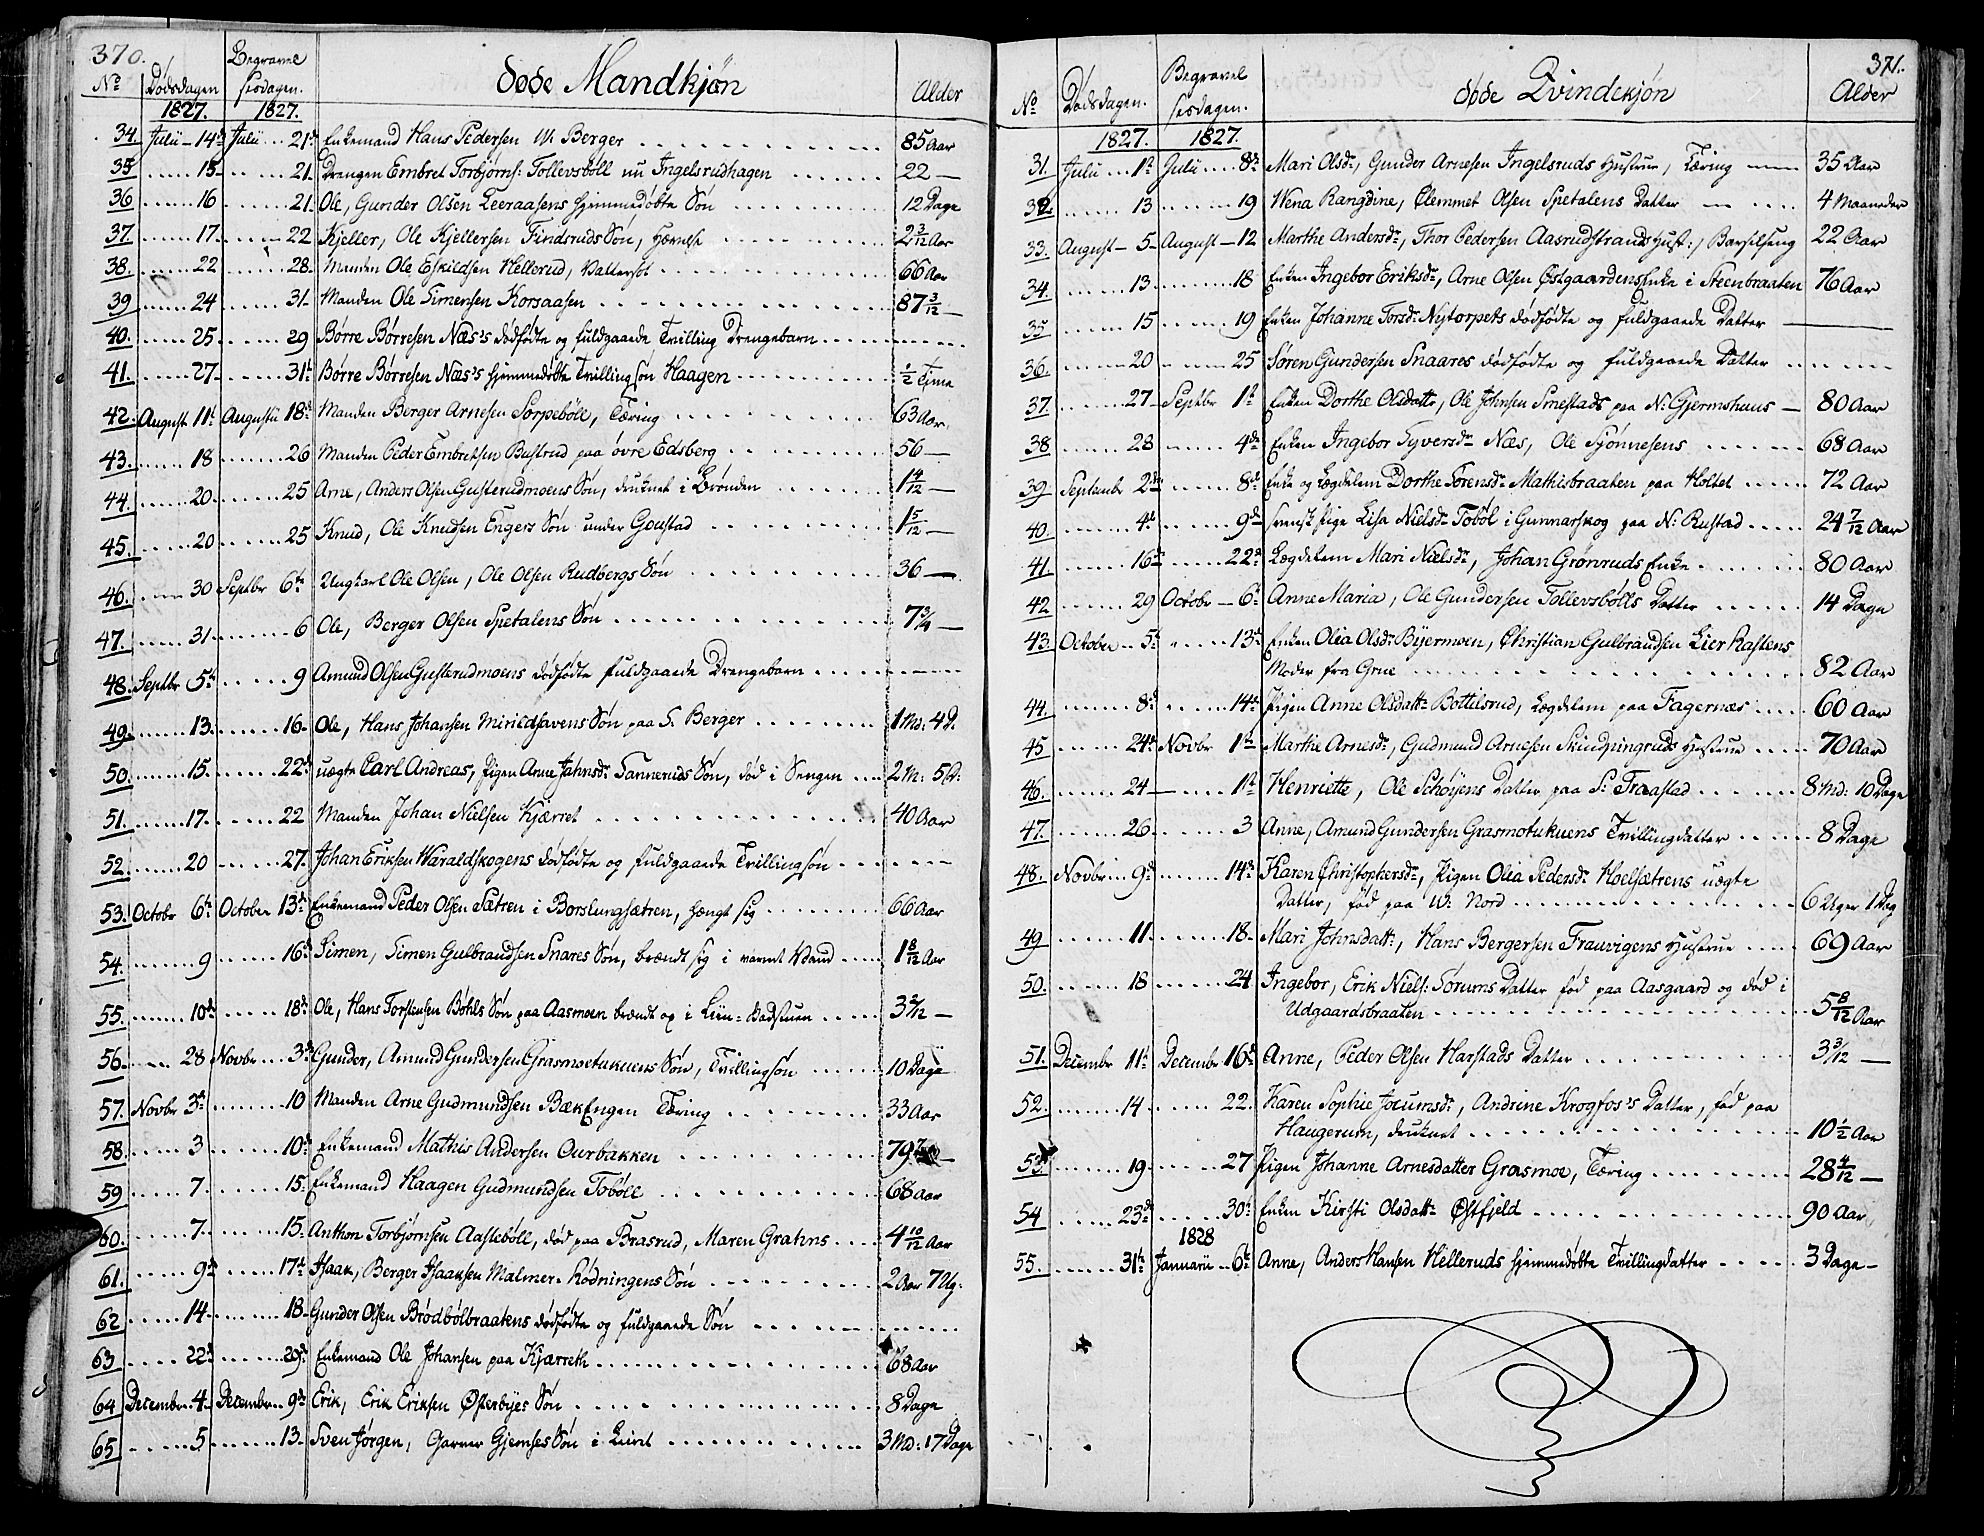 370.
Nº Dødsdagen Begravelsesdagen. døde Mandkjøn Alder
1827. 1827.
34. Julii - 14de Julii ... 21de Enkemand Hans Pedersen V: Berger 85 Aar
35 15 21. Drengen Embret Torbjørns: Tollevsböll nu Ingelsrudhagen 22 —
36 16 21. Ole, Gunder Olsen Leeraasens hjemmedøbte Søn 12 Dage
37. 17 22 Kjeller, Ole Kjellersen Findsruds Søn, 2 3/12 Aar
38. 22 28. Manden Ole Eskildsen Hellerud, Vattersot 66 Aar
39 24 31. Manden Ole Simensen Korsaasen 87 3/12 —
40. 25 29 Börre Börresen Næs's dødfødte og fuldgaaede Tvilling Drengebarn
41. 27 31te Börre Börresen Næs's hjemmedøbte Tvillingsøn Haagen 1/2 Time
42. August 11te Augustii 18de Manden Berger Arnesen Sorpeböll, Tæring 63 Aar.
43. 18 26 Manden Peder Embretsen Bastrud paa øvre Edsberg 56 —
44. 20 25 Arne, Anders Olsen Gusterudmoens Søn, druknet i Brønden 1 4/12 —
45. 20 25 Knud, Ole Knudsen Engers Søn under Goustad 1 5/12 —
46. 30 Septbr 6te Ungkarl Ole Olsen, Ole Olsen Rudbergs Søn 36 —
47. 31 6 Ole, Berger Olsen Spetalens Søn 7 3/4 —
48. Septbr 5te 9 Amund Olsen Gusterudmoens dødfødte fuldgaaede Drengebarn
49. 13. 16 Ole, Hans Johansen Mirildhavens Søn paa S. Berger 1 Md: 4 D.
50. 15. 22de uægte Carl Andreas, Pigen Anne Jahnsdr Tanneruds Søn, død i Sengen 2 M: 5 D:
51. 17. 22 Manden Johan Nielsen Kjærret 40 Aar
52. 20 27. Johan Eriksen Waraldskogens dødfødte og fuldgaaede Tvillingsøn
53. Octobr 6te October 13de Enkemand Peder Olsen Sætren i Borslungsætren, hængt sig 66 Aar
54. 9 16de Simen, Simen Gulbrandsen Snares Søn, brændt sig i varmt Vand 1 8/12 Aar
55. 10de 18de Ole, Hans Torstensen Bøhls Søn paa Aasmoen brændt op i Liin-Badstuen 3 2/12 —
56. 28 Novbr 3de Gunder, Amund Gundersen Grasmoetukuens Søn, Tvillingsøn 10 Dage
57. Novbr 3de 10 Manden Arne Gudmundsen BækEngen Tæring 33 Aar
58. 3 10de Enkemand Mathis Andersen Ourbakken 79
59 7 15. Enkemand Haagen Gudmundsen Toböll 68 Aar
60. 7. 15. Anthon Torbjørnsen Aasteböll, død paa Brasrud, Maren Grahns 4 10/12 Aar
61. 9de 17de Isaak, Berger Isaaksen Malmer-Rødningens Søn 2 Aar 7 Ug.
62 14. 18 Gunder Olsen Brødbølbraatens dødfødte og fuldgaaede Søn
63 22de 29de Enkemand Ole Johansen paa Kjærreth 68 Aar
64 December 4. December 9de Erik, Erik Eriksen Østerbyes Søn 8 Dage
65 5 13. Sven Jørgen, Garver Gjemses Søn i Leiret 3 Md: 17 Dage
371.
Nº Dødsdagen. Begravelsesdagen. døde Qvindekjøn Alder
1827. 1827.
31. Julii 1te Julii 8de Mari Olsdr, Gunder Arnesen Ingelsruds Hustrue, Tæring 35 Aar
32. 13 19 Wena Rangdine, Clemmet Olsen Spetalens Datter 4 Maaneder
33. August - 5 August - 12 Marthe Andersdr, Thor Pedersen Aasrudstrands Hust:, Barselseng 22 Aar
34. 13 18 Enken Ingebor Eriksdr, Arne Olsen Østgaardens Enke i Steenbraaten 76 Aar
35 15 19 Enken Johanne Torsdr Nytorpets dødfødte og fuldgaaede Datter
36. 20 25 Søren Gundersen Snaares dødfødte og fuldgaaede Datter
37. 27 Septbr 1te Enken Dorthe Olsdattr, Ole Johnsen Smestads paa N: Gjermshuus 80 Aar
38 28 4de Enken Ingebor Syversdr Næs, Ole Sjønnesens 68 Aar
39. Septembr 2den 8de Enke og Lægdelem Dorthe Torensdr Mathisbraaten paa Holtet 72 Aar
40. 4de 9de svensk Pige Lisa Nielsdr Toböl i Gunnarskog paa N: Rustad 24 7/12 Aar
41. 16de 22de Lægdelem Mari Nielsdr, Johan Grønruds Enke 80 Aar
42 29 Octobr 6te Anne Maria, Ole Gundersen Tollevsbölls Datter 14 Dage
43. October 5te 13de Enken Olia Olsdr Bijermoen, Christian Gulbrandsen Lier Kastens
Moder fra Grue 82 Aar
44. 8de 14de Pigen Anne Olsdattr Bottilsrud, Lægdelem paa Fagernæs 60 Aar
45 24de Novbr 1te Marthe Arnesdr, Gudmund Arnesen Skindpingruds Hustrue 70 Aar
46. 24 1te Henriette, Ole Schøyens Datter paa S: Traastad 8 Md: 10 Dage
47. 26 3 Anne, Amund Gundersen Grasmotukuens Tvillingdatter 8 Dage
48. Novbr 9de 14de Karen Christophersdr, Pigen Olia Pedersdr Hoelsætrens uægte
Datter, fød paa V: Nord 6 Uger 1 Dag
49 11 18 Mari Johnsdattr, Hans Bergersen Frauvigens Hustrue 69 Aar
50. 18 24 Ingebor, Erik Niels: Sørums Datter fød paa Aasgaard og død i
Udgaardsbraaten 5 8/12 Aar
51. Decembr 11te Decembr 16de Anne, Peder Olsen Harstads Datter 3 3/12 —
52. 14 22. Karen Sophie Jocumsdr, Andrine Krogfos's Datter, fød paa
Haugerum, druknet 10 1/2 Aar
53. 19 27 Pigen Johanne Arnesdatter Grasmoe, Tæring 28 4/12 —
54 23de 30te Enken Kirsti Olsdattr Østfjeld 90 Aar
1828
55. 31te Januarii 6te Anne, Anders Hansen Helleruds hjemmedøbte Tvillingdatter 3 Dage